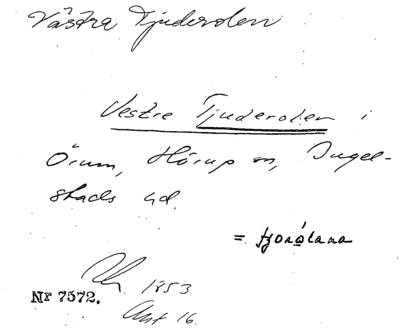 Västra Tjuderolen
Vestre Tjuderolen i
Örum, Hörup sn, Ingel-
stads hd.
= tjorálana
1853
Nr 7572.
Akt 16